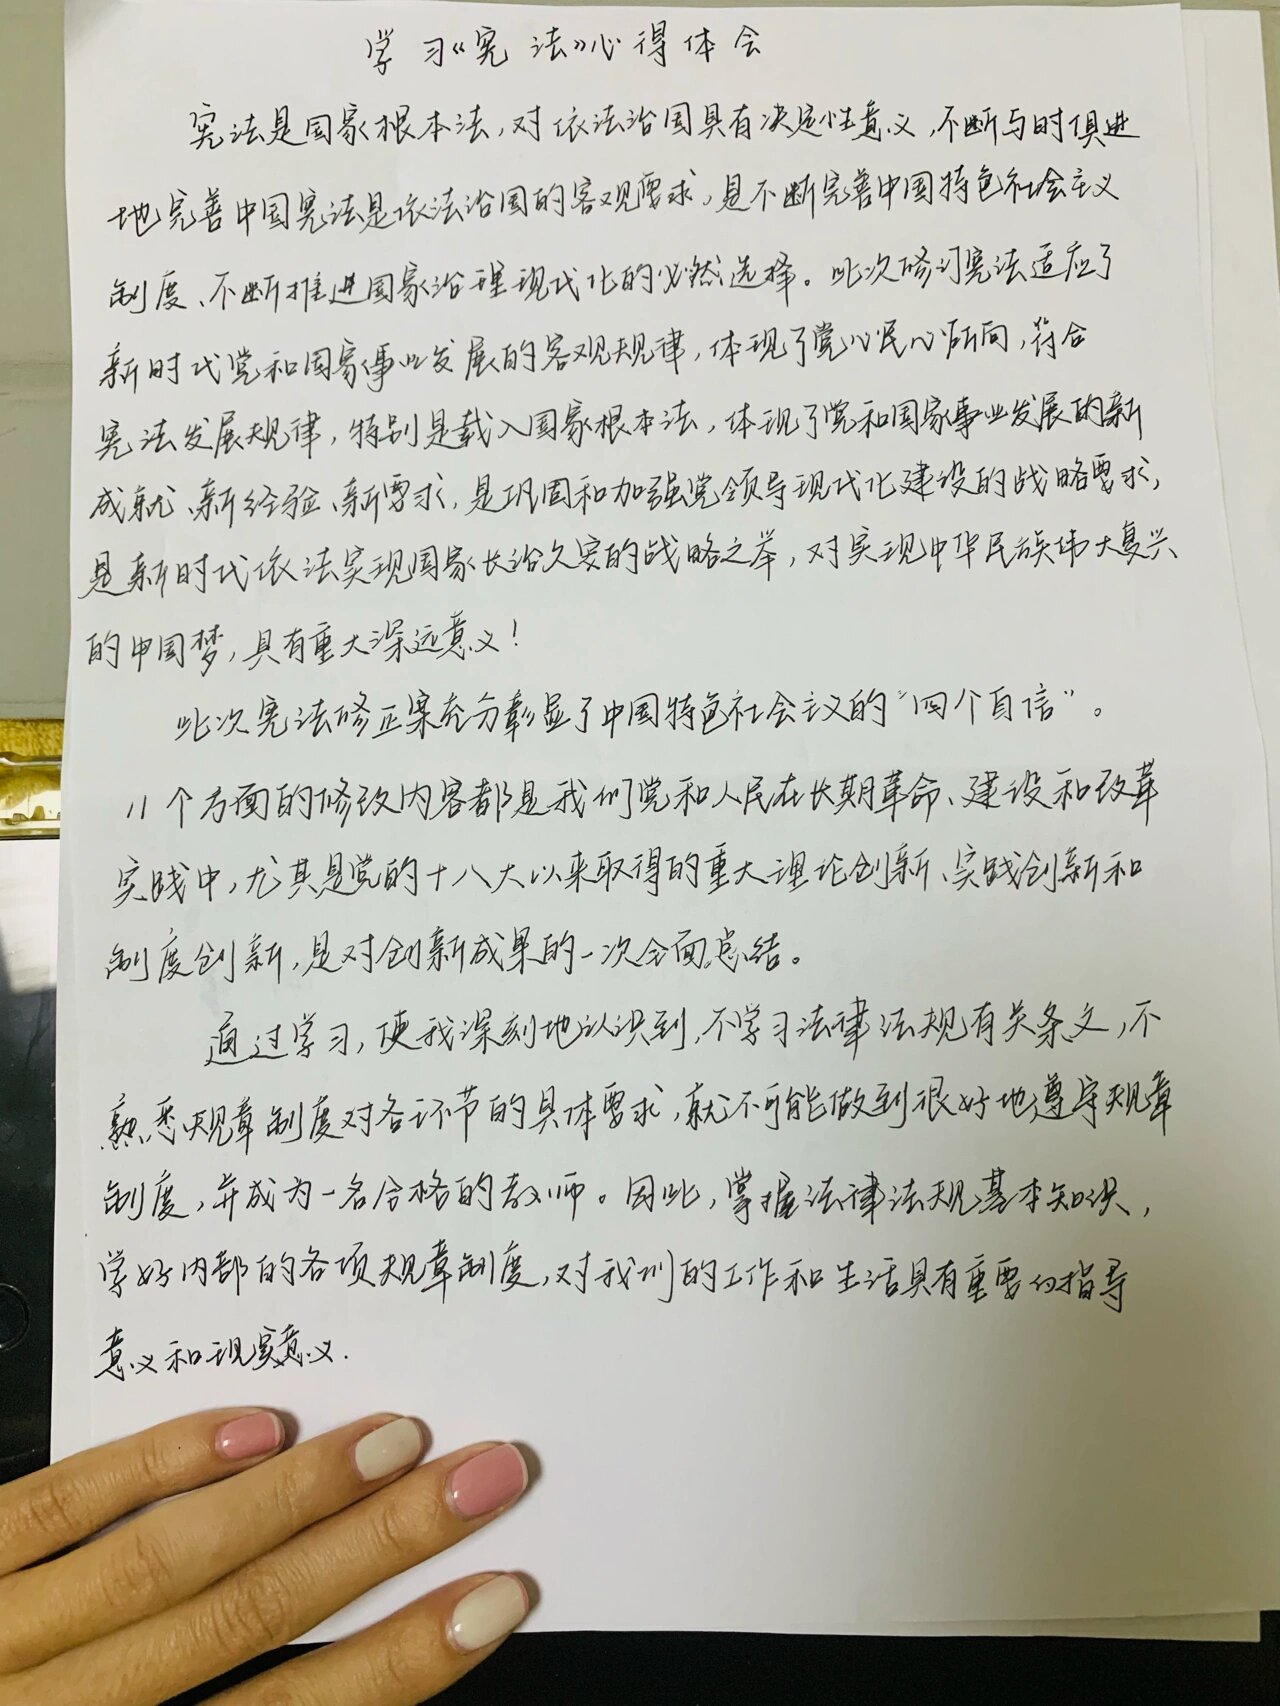 学习《宪法》心得体会
宪法是国家根本法，对依法治国具有决定性意义，不断与时俱进
地完善中国宪法是依法治国的客观要求，是不断完善中国特色社会主义
制度、不断推进国家治理现代化的必然选择。此次修订宪法适应了
新时代党和国家事业发展的客观规律，体现了党心民心所向，符合
宪法发展规律，特别是载入国家根本法，体现了党和国家事业发展的新
成就、新经验、新要求，是巩固和加强党领导现代化建设的战略要求，
是新时代依法实现国家长治久安的战略之举，对实现中华民族伟大复兴
的中国梦，具有重大深远意义！
此次宪法修正案充分彰显了中国特色社会主义的“四个自信”。
11个方面的修改内容都是我们党和人民在长期革命、建设和改革
实践中，尤其是党的十八大以来取得的重大理论创新、实践创新和
制度创新，是对创新成果的一次全面总结。
通过学习，使我深刻地认识到，不学习法律法规有关条文，不
熟悉规章制度对各环节的具体要求，就不可能做到很好地遵守规章
制度，并成为一名合格的教师。因此，掌握法律法规基本知识，
学好内部的各项规章制度，对我们的工作和生活具有重要的指导
意义和现实意义.